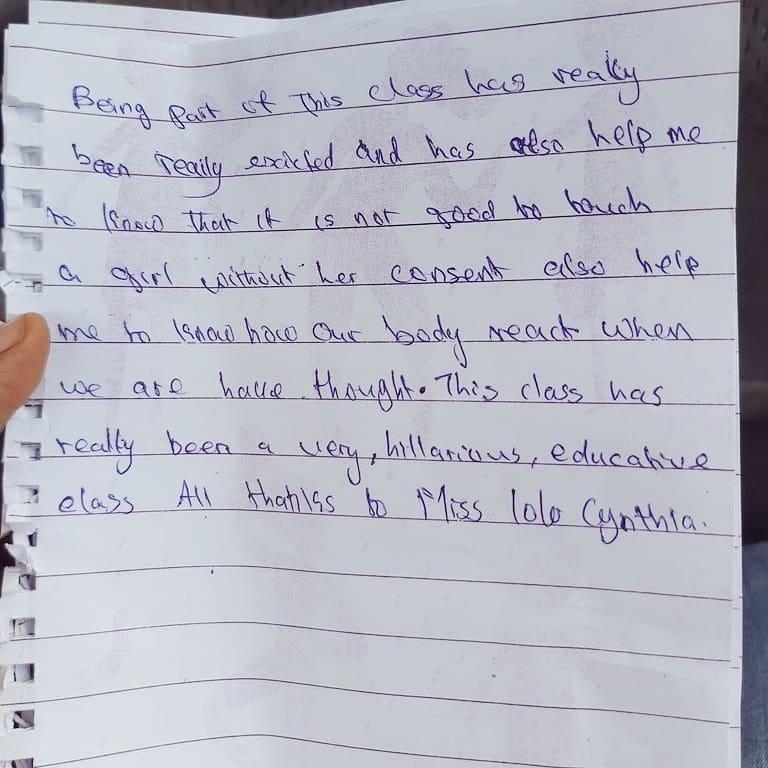 Being part of This class has really
been really exicited and has also help me
to know that it is not good to touch
a girl without her consent also help
me to know how our body react when
we are have thought. This class has
really been a very, hillarious, educative
class All thanks to Miss lolo Cynthia.